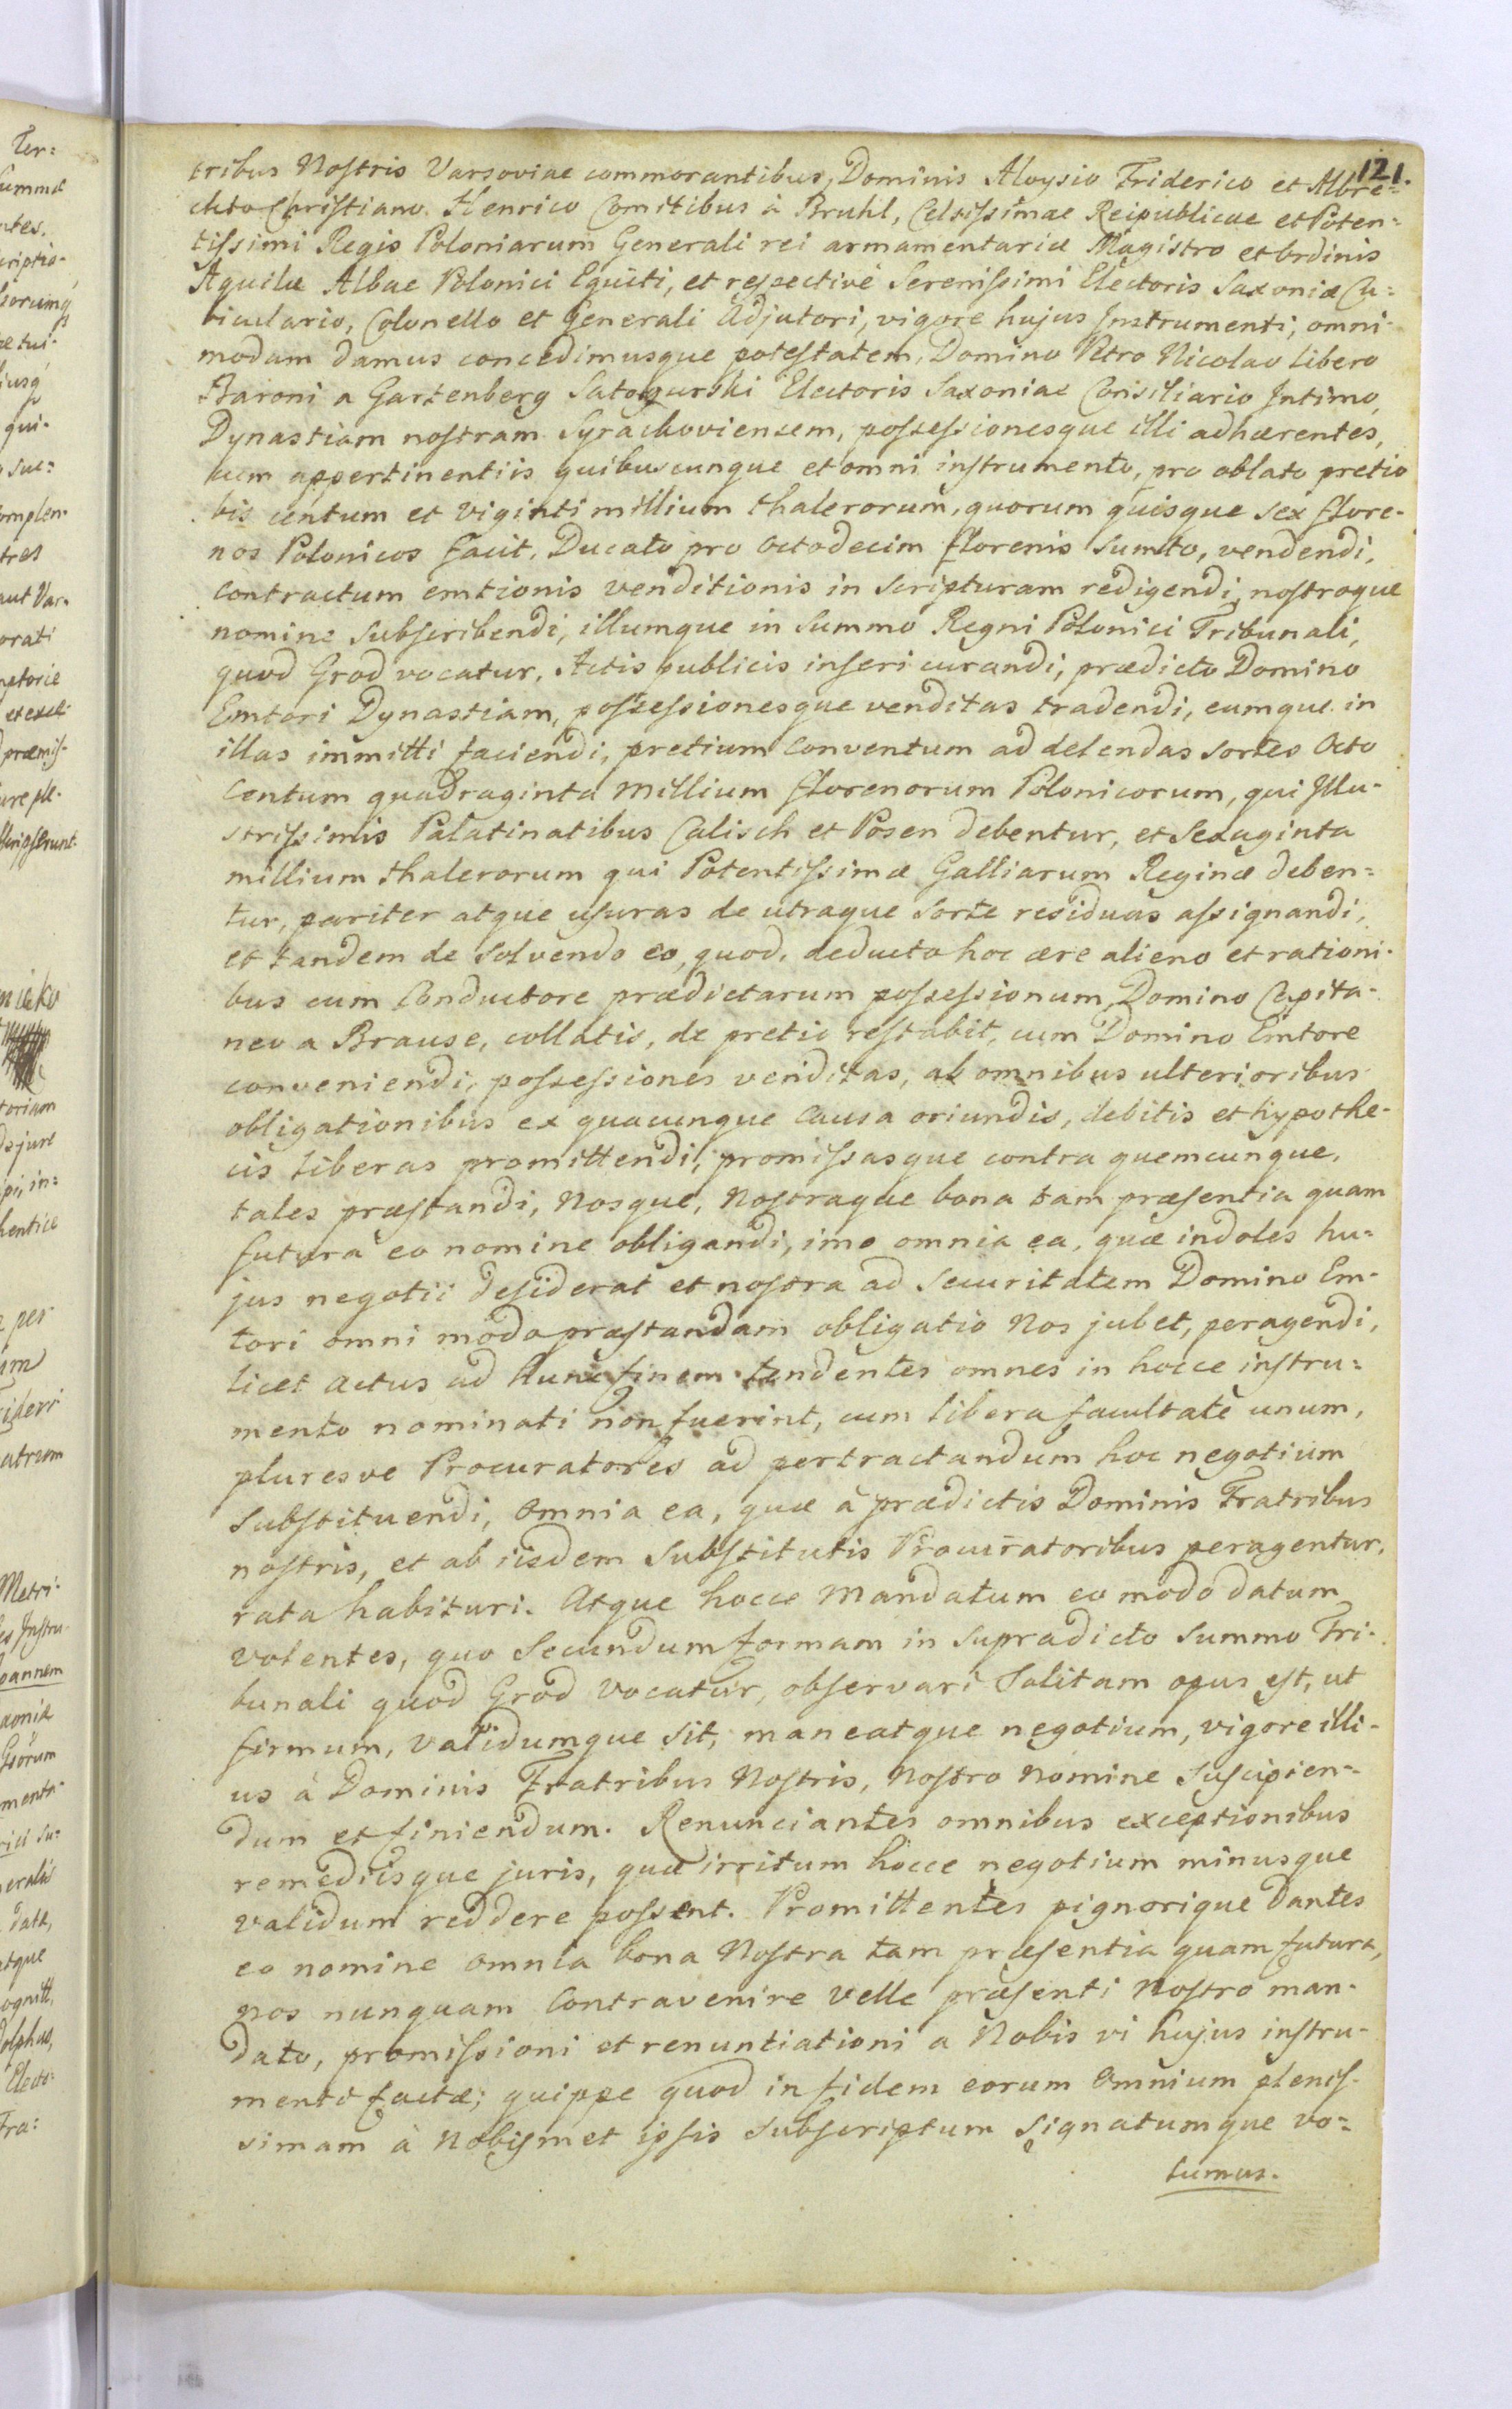 121.
tribus Nostris Varsoviae commorantibus, Dominis Aloysio Friderico et Albre=
chto Christiano Henrico Comitibus à Bruhl, Celsissimae Reipublicae et Poten=
tissimi Regis Poloniarum Generali rei armamentariæ Magistro et Ordinis
Aquilæ Albae Polonici Equiti, et respectivè Serenissimi Electoris Saxoniæ Cu=
biculario, Colonello et Generali Adjutori, vigore hujus Instrumenti, omni-
modam damus concedimusque potestatem, Domino Petro Nicolao Libero
Baroni a Gartenberg Satogurski Electoris Saxoniae Consiliario Intimo,
Dynastiam nostram Syrachoviensem, possessionesque illi adhærentes,
cum appertinentiis quibuscunque et omni instrumento, pro oblato pretio
bis centum et viginti millium thalerorum, quorum quisque sex flore-
nos Polonicos facit, Ducato pro octodecim florenis sumto, vendendi,
contractum emtionis venditionis in scripturam redigendi, nostroque
nomine subscribendi, illumque in Summo Regni Polonici Tribunali,
quod Grod vocatur, Actis publicis inseri curandi, prædicto Domino
Emtori Dynastiam, possessionesque venditas tradendi, eumque in
illas immitti faciendi, pretium conventum ad delendas sortes Octo
Centum quadraginta millium florenorum Polonicorum, qui Illu-
strissimis Palatinatibus Calisch et Posen debentur, et Sexaginta
millium thalerorum qui Potentissimæ Galliarum Reginæ deben=
tur, pariter atque usuras de utraque sorte residuas assignandi,
et tandem de solvendo eo, quod, deducto hoc ære alieno et rationi-
bus cum Conductore prædictarum possessionum, Domino Capita-
neo a Brause, collatis, de pretio restabit, cum Domino Emtore
conveniendi, possessiones venditas, ab omnibus ulterioribus
obligationibus ex quacunque causa oriundis, debitis et hypothe-
cis liberas promittendi, promissasque contra quemcunque,
tales præstandi, Nosque, Nostraque bona tam præsentia quam
futura eo nomine obligandi, imo omnia ea, quæ indoles hu=
jus negotii desiderat et nostra ad securitatem Domino Em-
tori omni modo præstandam obligatio Nos jubet, peragendi,
licet actus ad hunc finem tendentes omnes in hocce instru=
mento nominati non fuerint, cum libera facultate unum,
pluresve Procuratores ad pertractandum hoc negotium
substituendi, omnia ea, quæ à prædictis Dominis Fratribus
nostris, et ab iisdem substitutis Procuratoribus peragentur,
rata habituri. Atque hocce Mandatum eo modo datum
volentes, quo secundum formam in supradicto Summo Tri-
bunali quod Grod vocatur, observari solitam opus est, ut
firmum, validumque sit, maneatque negotium, vigore illi-
us à Dominis Fratribus Nostris, Nostro Nomine suscipien-
dum et finiendum. Renunciantes omnibus exceptionibus
remediisque juris, quæ irritum hocce negotium minusque
validum reddere possent. Promittentes pignorique Dantes
eo nomine omnia bona Nostra tam præsentia quam futura,
nos nunquam contravenire velle præsenti Nostro man-
dato, promissioni et renuntiationi a Nobis vi hujus instru-
menti factæ; quippe quod in fidem eorum omnium plenis-
simam à Nobismet ipsis subscriptum signatumque vo=
lumus.